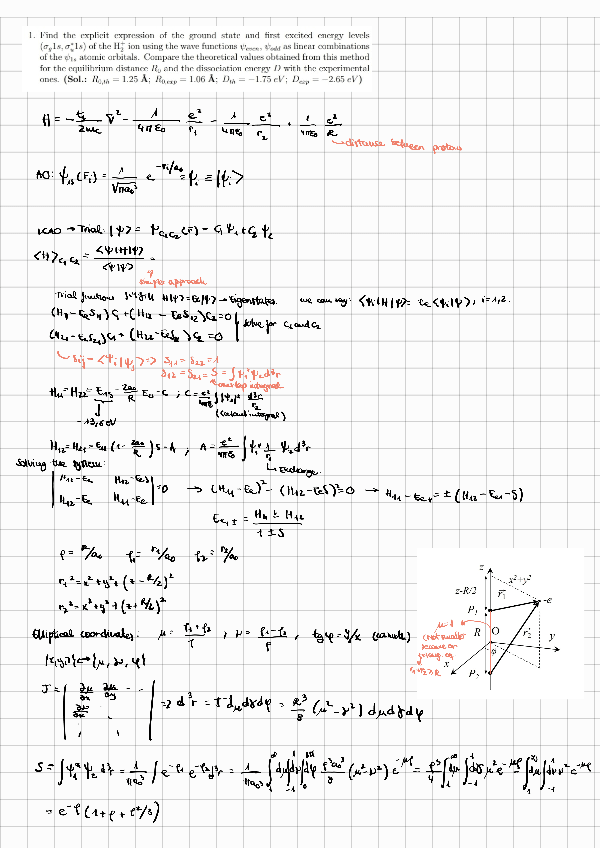 1. Find the explicit expression of the ground state and first excited energy levels
(σg1s, σu*1s) of the H2+ ion using the wave functions ψeven, ψodd as linear combinations
of the ψ1s atomic orbitals. Compare the theoretical values obtained from this method
for the equilibrium distance R0 and the dissociation energy D with the experimental
ones. (Sol.: R0,th = 1.25 Å; R0,exp = 1.06 Å; Dth = −1.75 eV; Dexp = −2.65 eV)
H = -ħ/2me ∇² - 1/4πε0 e²/r1 - 1/4πε0 e²/r2 + 1/4πε0 e²/R
distance between protons
AO: ψ1s(ri) = 1/√πa0³ e^-ri/a0 = ψi ≡ |ψi>
LCAO → Trial: |ψ> = ψc1c2(r) = c1ψ1 + c2ψ2
<H>c1c2 = <ψ|H|ψ>/<ψ|ψ> =
simple approach
Trial functions H|ψ>=Ee|ψ> → Eigenstates. we can say: <ψi|H|ψ> = Ee<ψi|ψ>, i=1,2.
(H11-EeS11)c1 + (H12-EeS12)c2=0
(H21-EeS21)c1 + (H22-EeS22)c2=0
solve for c1 and c2
Sij = <ψi|ψj> => S11=S22=1
S12=S21=S=∫ψ1*ψ2d³r
overlap integral
H11=H22=E1s - 2a0/R E1s - C ; C=e²/4πε0 ∫|ψ1|² d³r/r2
(Coulomb integral)
-13,6 eV
H12=H21=E1s(1-2a0/R)S-A ; A=e²/4πε0 ∫ψ1* 1/r1 ψ2d³r
Exchange
Solving the system:
|H11-Ee H12-EeS|
|H12-EeS H11-Ee| =0 → (H11-Ee)²-(H12-EeS)²=0 → H11-Ee± = ±(H12-Ee±S)
Ee± = H11 ± H12 / 1 ± S
ρ=R/a0 ρ1=r1/a0 ρ2=r2/a0
r1²=x²+y²+(z-R/2)²
r2²=x²+y²+(z+R/2)²
Elliptical coordinates: μ = ρ1+ρ2/ρ , ν = ρ1-ρ2/ρ , tgφ=y/x
{x,y,z}↔{μ,ν,φ}
z
x²+y²
z-R/2
r1
-e
P1
R
O
r2
y
φ
x
P2
J = | ∂μ/∂x ∂μ/∂y ... | => d³r = J dμdνdφ = R³/8 (μ²-ν²) dμdνdφ
S=∫ψ1*ψ2 d³r = 1/πa0³ ∫e^-ρ1 e^-ρ2 d³r = 1/πa0³ ∫dμ∫dν∫dφ ρ³a0³/8 (μ²-ν²) e^-μρ = ρ³/4 ∫dμ∫dν μ²e^-μρ - ∫dμ∫dν ν² e^-μρ
= e^-ρ (1+ρ+ρ²/3)